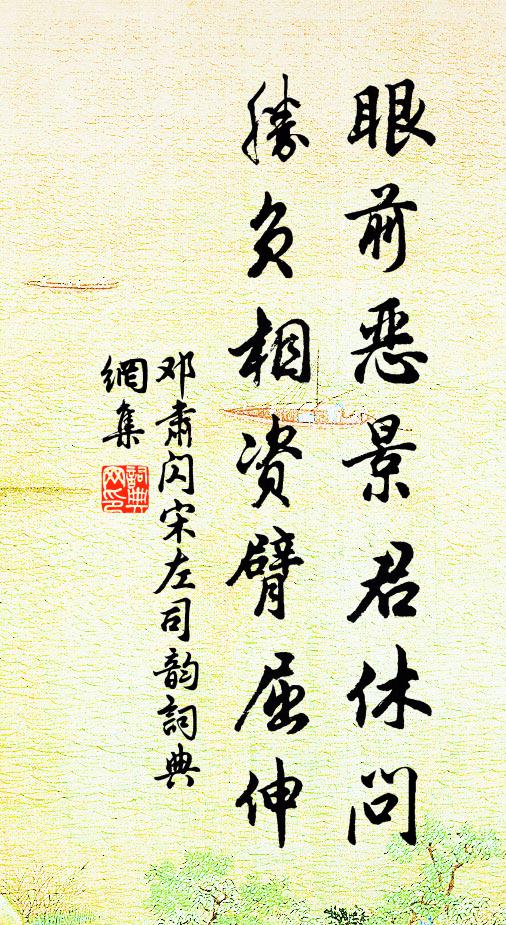 眼前恶景君休问
勝负相资臂屈伸
邓肃闪宋左司韵詞典
網集
詞典
网印